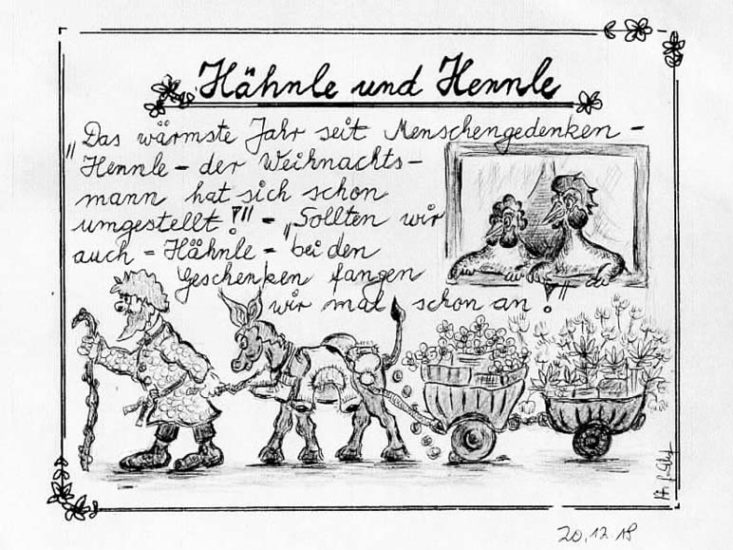 Hähnle und Hennle
"Das wärmste Jahr seit Menschengedenken –
Hennle – der Weihnachts-
mann hat sich schon
umgestellt?!" – "Sollten wir
auch – Hähnle – bei den
Geschenken fangen
wir mal schon an!"
20.12.18